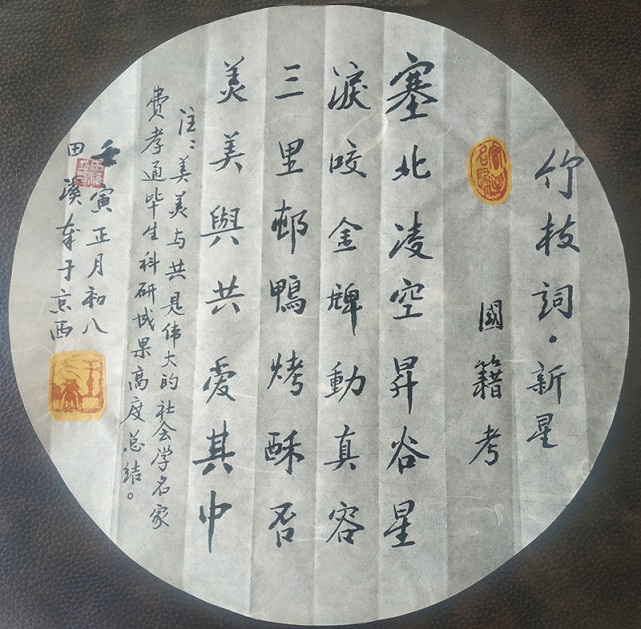 竹枝詞·新星
國籍考
塞北凌空昇谷星
淚咬金牌動真容
三里邨鴨烤酥否
美美與共爱其中
注：美美与共是伟大的社会学名家
费孝通毕生科研成果高度总结。
壬寅正月初八
田溪奉于京西